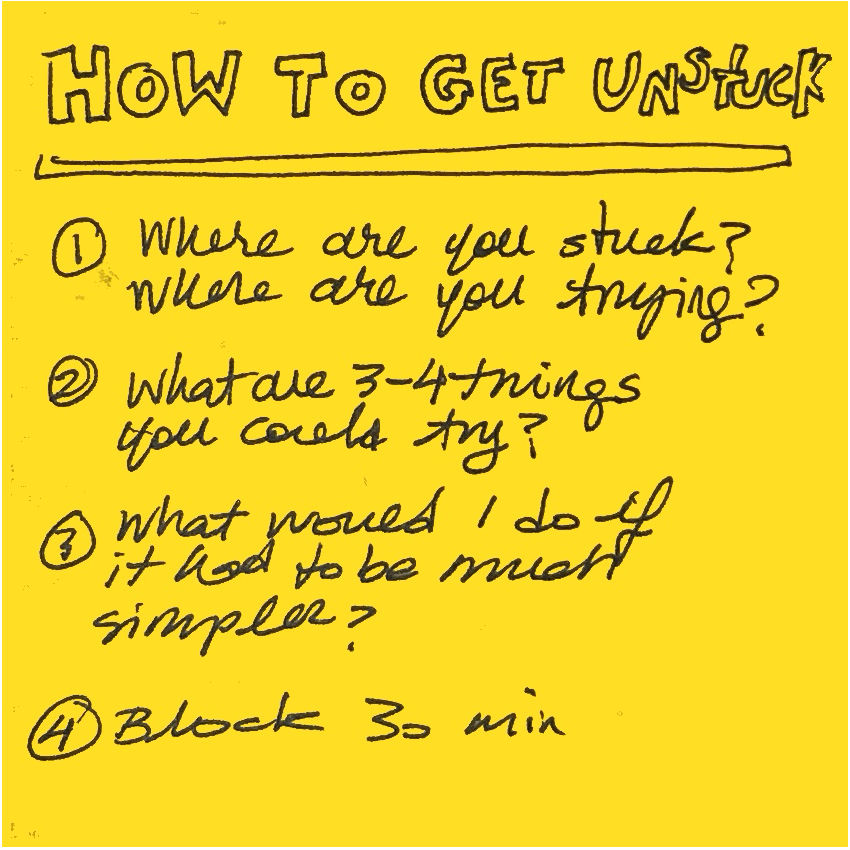 HOW TO GET UNSTUCK
① Where are you stuck?
Where are you trying?
② What are 3-4 things
you could try?
③ What would I do if
it had to be much
simpler?
④ Block 30 min